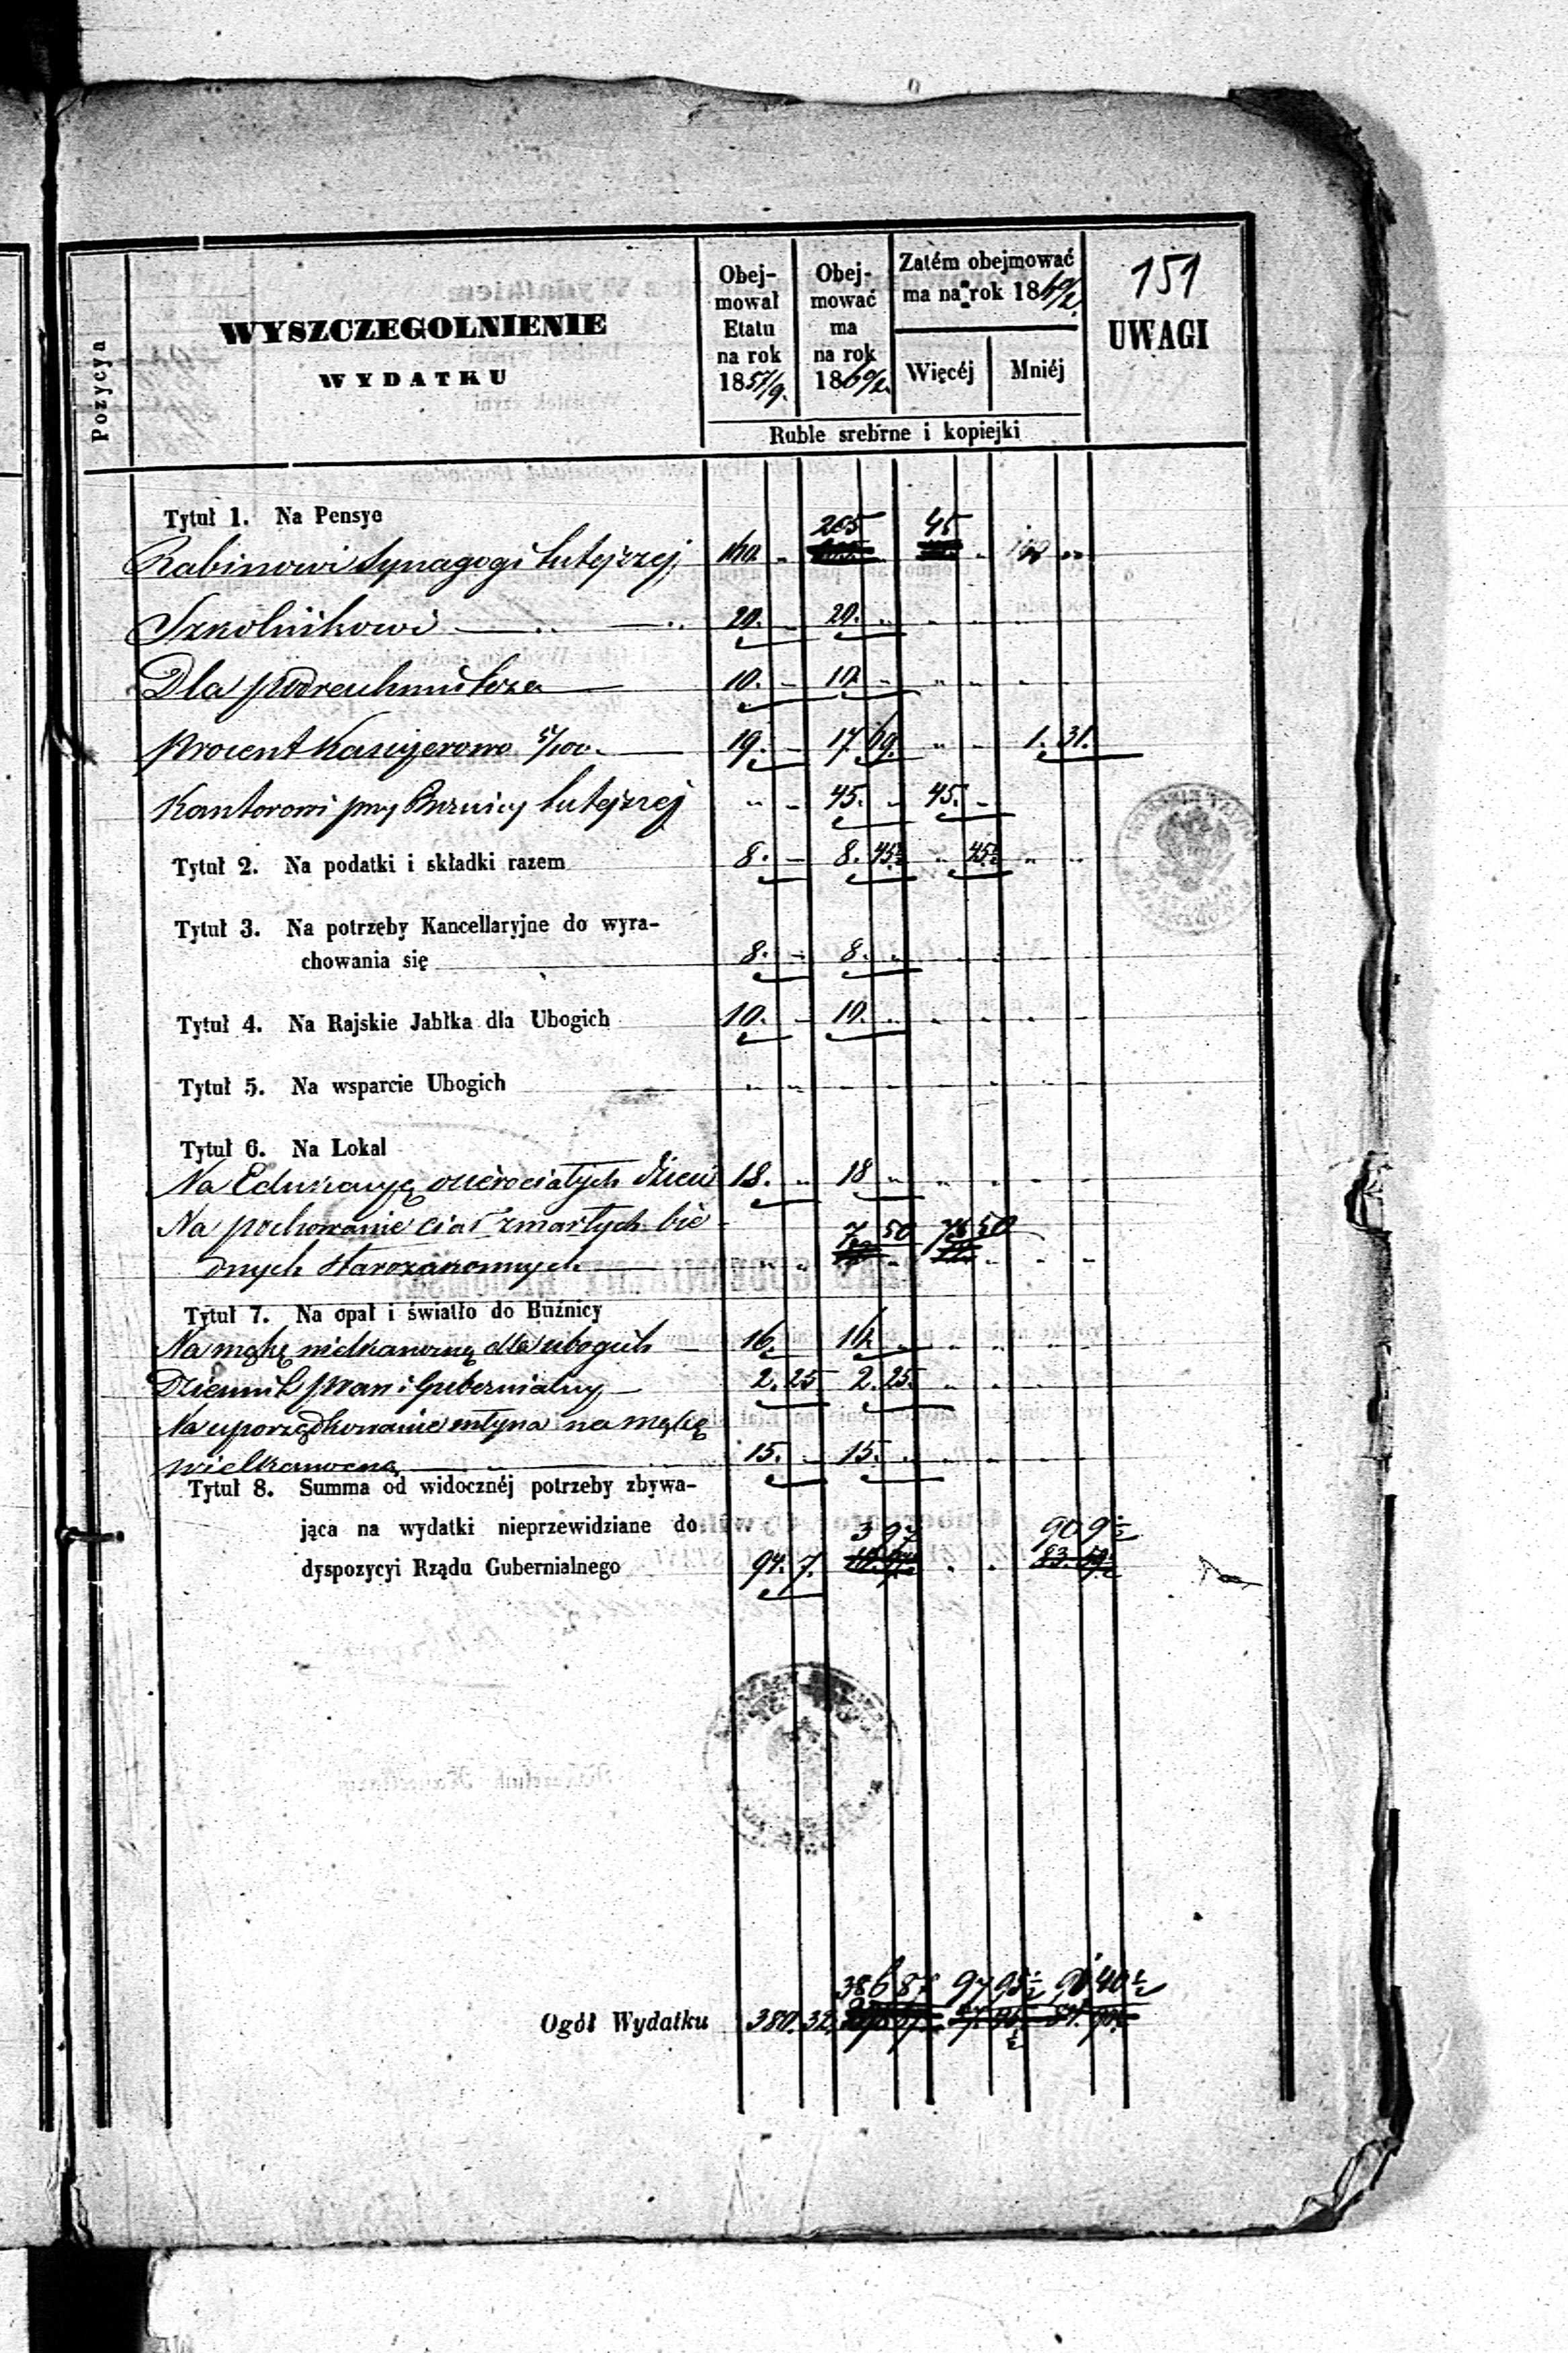 Pozycya
WYSZCZEGOLNIENIE
WYDATKU
Obej-
mował
Etatu
na rok
1857/9.
Obej-
mować
ma
na rok
1860/2.
Zatém obejmować
ma na rok 1860/2.
Więcéj Mniéj
Ruble srebrne i kopiejki
151
UWAGI
Tytuł 1. Na Pensye
205 45
Rabinowi Synagogi tutejszej 160. "
Szkolnikowi 20. " 20. "
Dla podrachmistrza 10. " 10. "
Procent Kassyerowo 5/100. 19. " 17. 69. " " 1. 31.
Kantorowi przy Bożnicy tutejszej " " 45. " 45. "
Tytuł 2. Na podatki i składki razem 8. " 8. 45½ " 45½ " "
Tytuł 3. Na potrzeby Kancellaryjne do wyra-
chowania się 8. " 8. "
Tytuł 4. Na Rajskie Jabłka dla Ubogich 10. " 10. "
Tytuł 5. Na wsparcie Ubogich
Tytuł 6. Na Lokal
Na Edukacyę osierociałych dzieci 18. " 18 "
Na pochowanie ciał zmarłych bie-
7 50 50
dnych starozakonnych
Tytuł 7. Na opał i światło do Buźnicy
Na mąkę wielkanocną dla ubogich 16. " 16. "
Dziennik praw i Gubernialny 2. 25 2. 25.
Na uporządkowanie młyna na mąkę
wielkanocną 15. " 15. "
Tytuł 8. Summa od widocznéj potrzeby zbywa-
jąca na wydatki nieprzewidziane do 3 97 90 9½
dyspozycyi Rządu Gubernialnego 94. 7.
386 87 97 95½ 40½
Ogół Wydatku 380. 32.